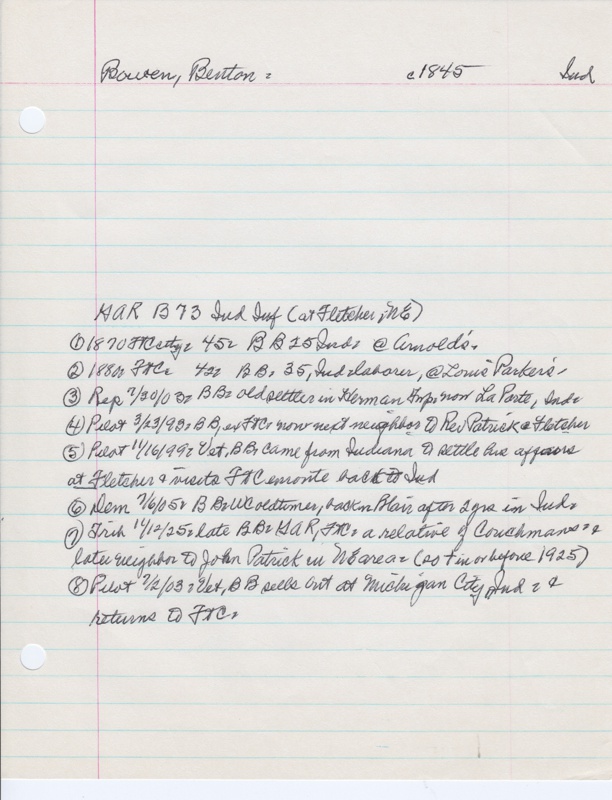 Bowen, Benton: c1845 Ind
GAR B 73 Ind Inf (at Fletcher, NE)
① 1870 FtC city: 45: BB 25 Ind: @ Arnold's.
② 1880: FtC: 42: BB: 35, Ind: laborer, @ Louis Parker's.
③ Rep 7/20/03: BB: old settler in Herman Twp: now La Porte, Ind:
④ Pilot 3/23/93: BB, ex FtC: now next neighbor to Rev Patrick @ Fletcher
⑤ Pilot 11/16/99: Vet, BB: came from Indiana to settle his affairs
at Fletcher & visits FtC enroute back to Ind
⑥ Dem 7/6/05: BB: WC oldtimer, back in Blair after 2 yrs in Ind:
⑦ Trib 11/12/25: late BB: GAR, FtC: a relative of Couchmans: &
later neighbor to John Patrick in NE area: (so in or before 1925)
⑧ Pilot 7/2/03: Vet, BB sells out at Michigan City, Ind: &
returns to FtC: